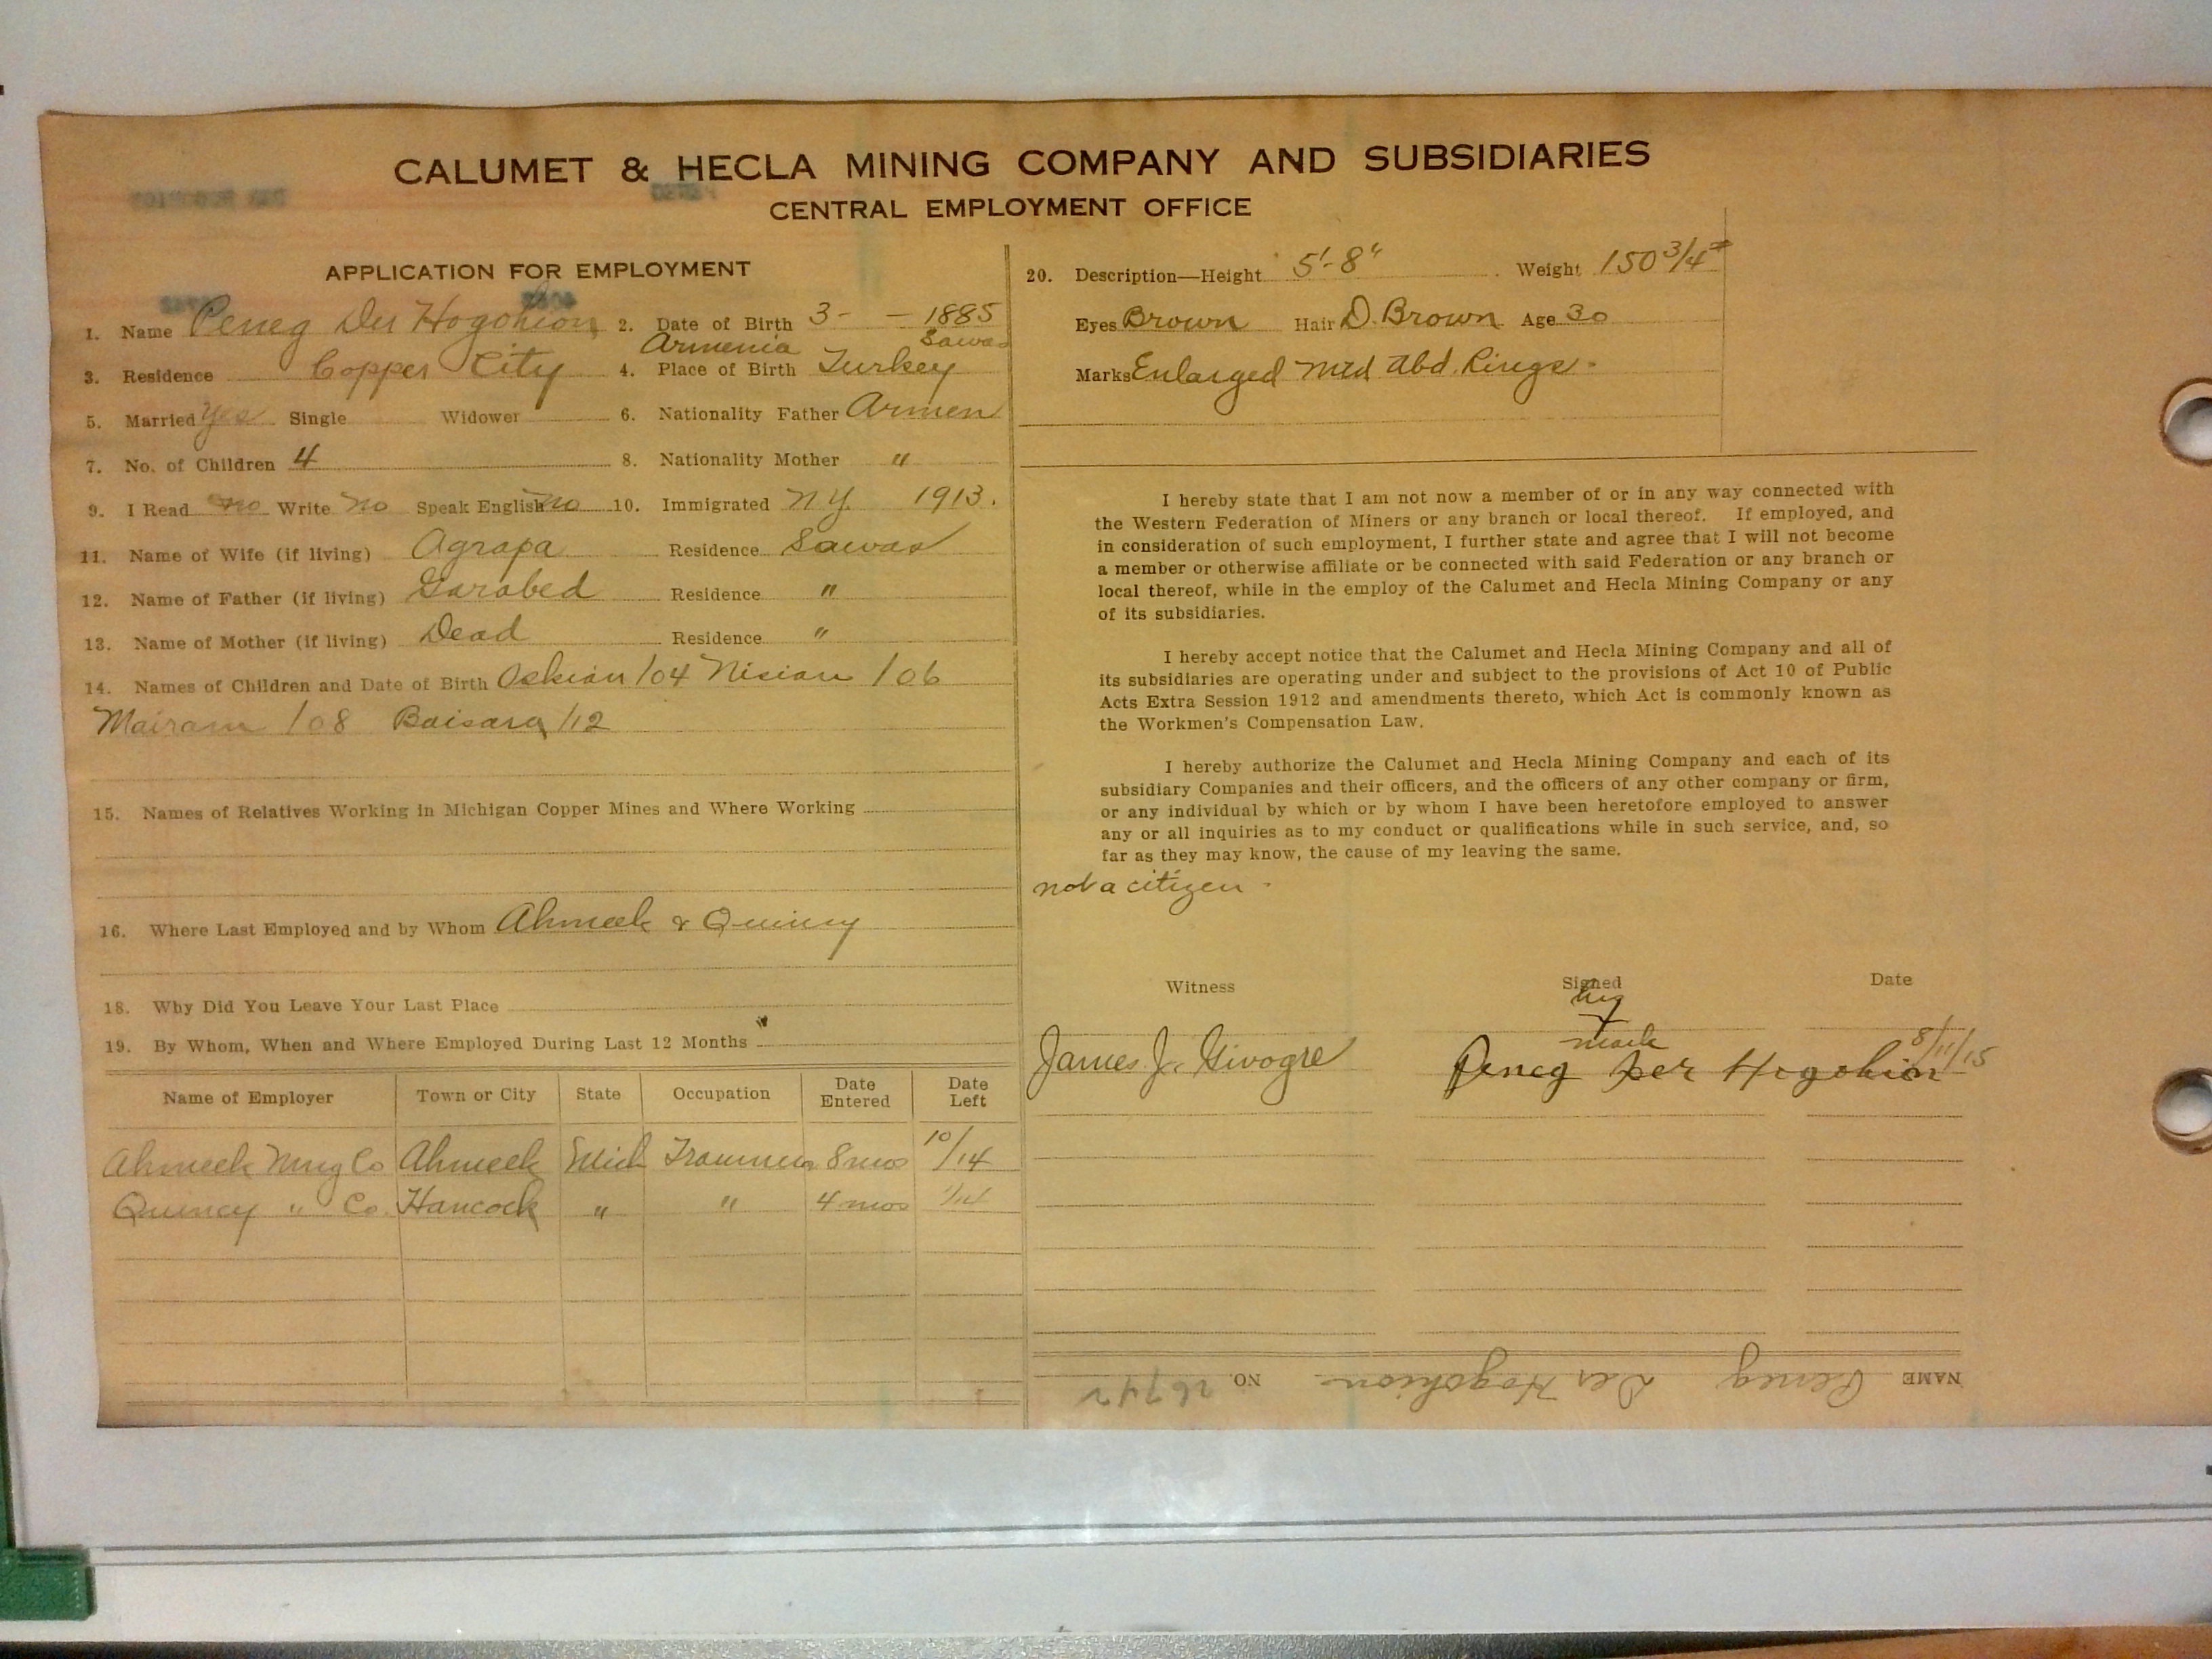 CALUMET & HECLA MINING COMPANY AND SUBSIDIARIES
CENTRAL EMPLOYMENT OFFICE
APPLICATION FOR EMPLOYMENT
1. Name Peneg Der Hogohion 2. Date of Birth 3- - 1885
Armenia Sawas
3. Residence Copper City 4. Place of Birth Turkey
5. Married Yes Single Widower 6. Nationality Father Armen
7. No. of Children 4 8. Nationality Mother "
9. I Read no Write no Speak English no 10. Immigrated N Y. 1913.
11. Name of Wife (if living) Agrapa Residence Sawas
12. Name of Father (if living) Garabed Residence "
13. Name of Mother (if living) Dead Residence "
14. Names of Children and Date of Birth Oskian /04 Nisian /06
Mairam /08 Baisarq /12
15. Names of Relatives Working in Michigan Copper Mines and Where Working
16. Where Last Employed and by Whom Ahmeek & Quincy
18. Why Did You Leave Your Last Place
19. By Whom, When and Where Employed During Last 12 Months
Name of Employer Town or City State Occupation Date Entered Date Left
Ahmeek Mng Co Ahmeek Mich Trammer 8 mos 10/14
Quincy " Co Hancock " " 4 mos 1/14
20. Description—Height 5'-8" Weight 150 3/4 #
Eyes Brown Hair D. Brown Age 30
Marks Enlarged Med Abd. Rings -
I hereby state that I am not now a member of or in any way connected with
the Western Federation of Miners or any branch or local thereof. If employed, and
in consideration of such employment, I further state and agree that I will not become
a member or otherwise affiliate or be connected with said Federation or any branch or
local thereof, while in the employ of the Calumet and Hecla Mining Company or any
of its subsidiaries.
I hereby accept notice that the Calumet and Hecla Mining Company and all of
its subsidiaries are operating under and subject to the provisions of Act 10 of Public
Acts Extra Session 1912 and amendments thereto, which Act is commonly known as
the Workmen's Compensation Law.
I hereby authorize the Calumet and Hecla Mining Company and each of its
subsidiary Companies and their officers, and the officers of any other company or firm,
or any individual by which or by whom I have been heretofore employed to answer
any or all inquiries as to my conduct or qualifications while in such service, and, so
far as they may know, the cause of my leaving the same.
not a citizen -
Witness Signed Date
his
X
mark
James J. Givogre Peneg Der Hogohion 8/11/15
NAME Peneg Der Hogohion NO. 26742